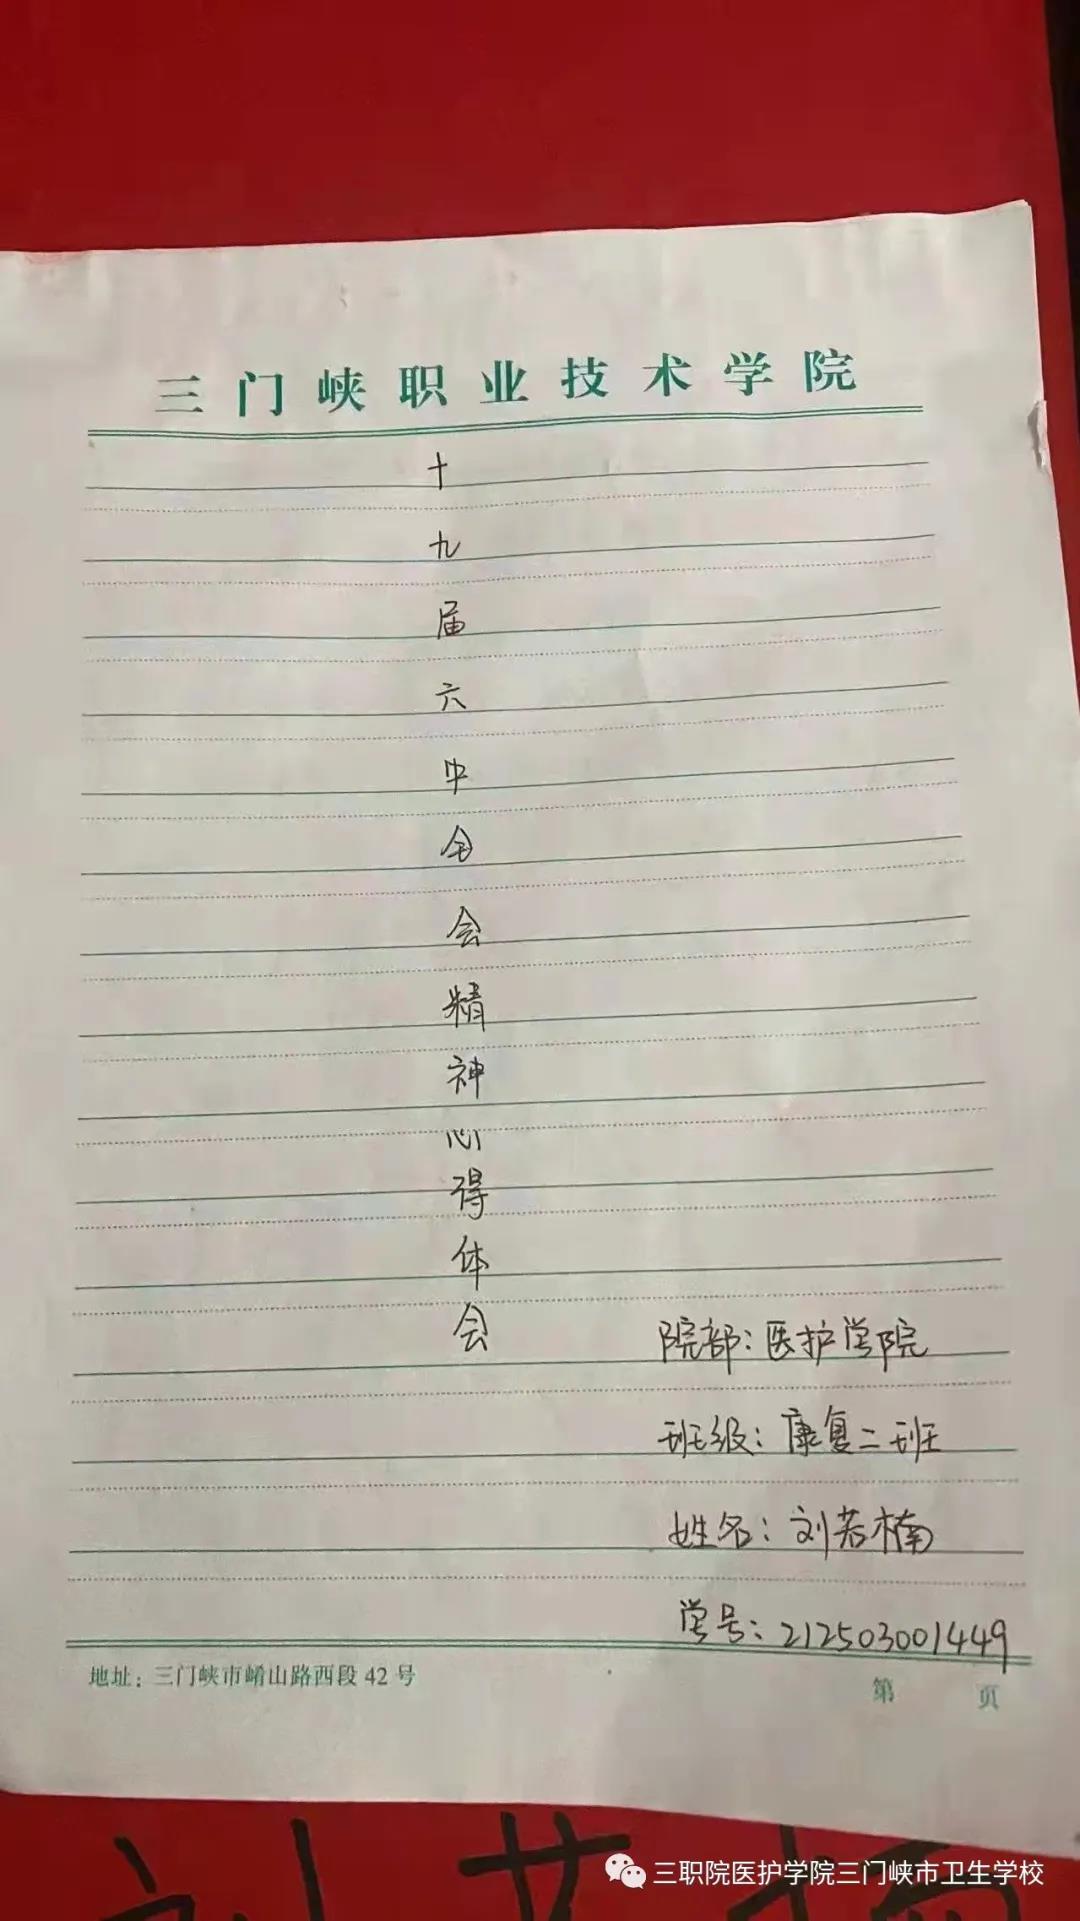 三门峡职业技术学院
十
九
届
六
中
全
会
精
神
心
得
体
会
院部：医护学院
班级：康复二班
姓名：刘若楠
学号：212503001449
地址：三门峡市崤山路西段 42 号
第 页
三职院医护学院三门峡市卫生学校